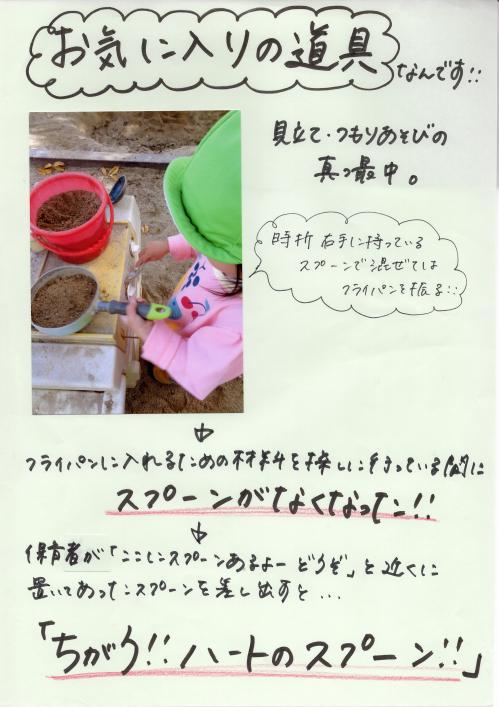 お気に入りの道具
なんです!!
見立て・つもりあそびの
真っ最中。
時折 右手に持っている
スプーンで混ぜては
フライパンを振る!!
フライパンに入れるための材料を探しに行っている間に
スプーンがなくなった!!
保育者が「ここにスプーンあるよー どうぞ」と近くに
置いてあったスプーンを差し出すと...
「ちがう!! ハートのスプーン!!」